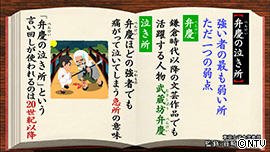 【弁慶の泣き所】
強い者の最も弱い所
ただ一つの弱点
弁慶
鎌倉時代以降の文芸作品でも
活躍する人物 武蔵坊弁慶
泣き所
弁慶ほどの強者でも
痛がって泣いてしまう急所の意味
「弁慶の泣き所」という
言い回しが使われるのは20世紀以降
©NTV